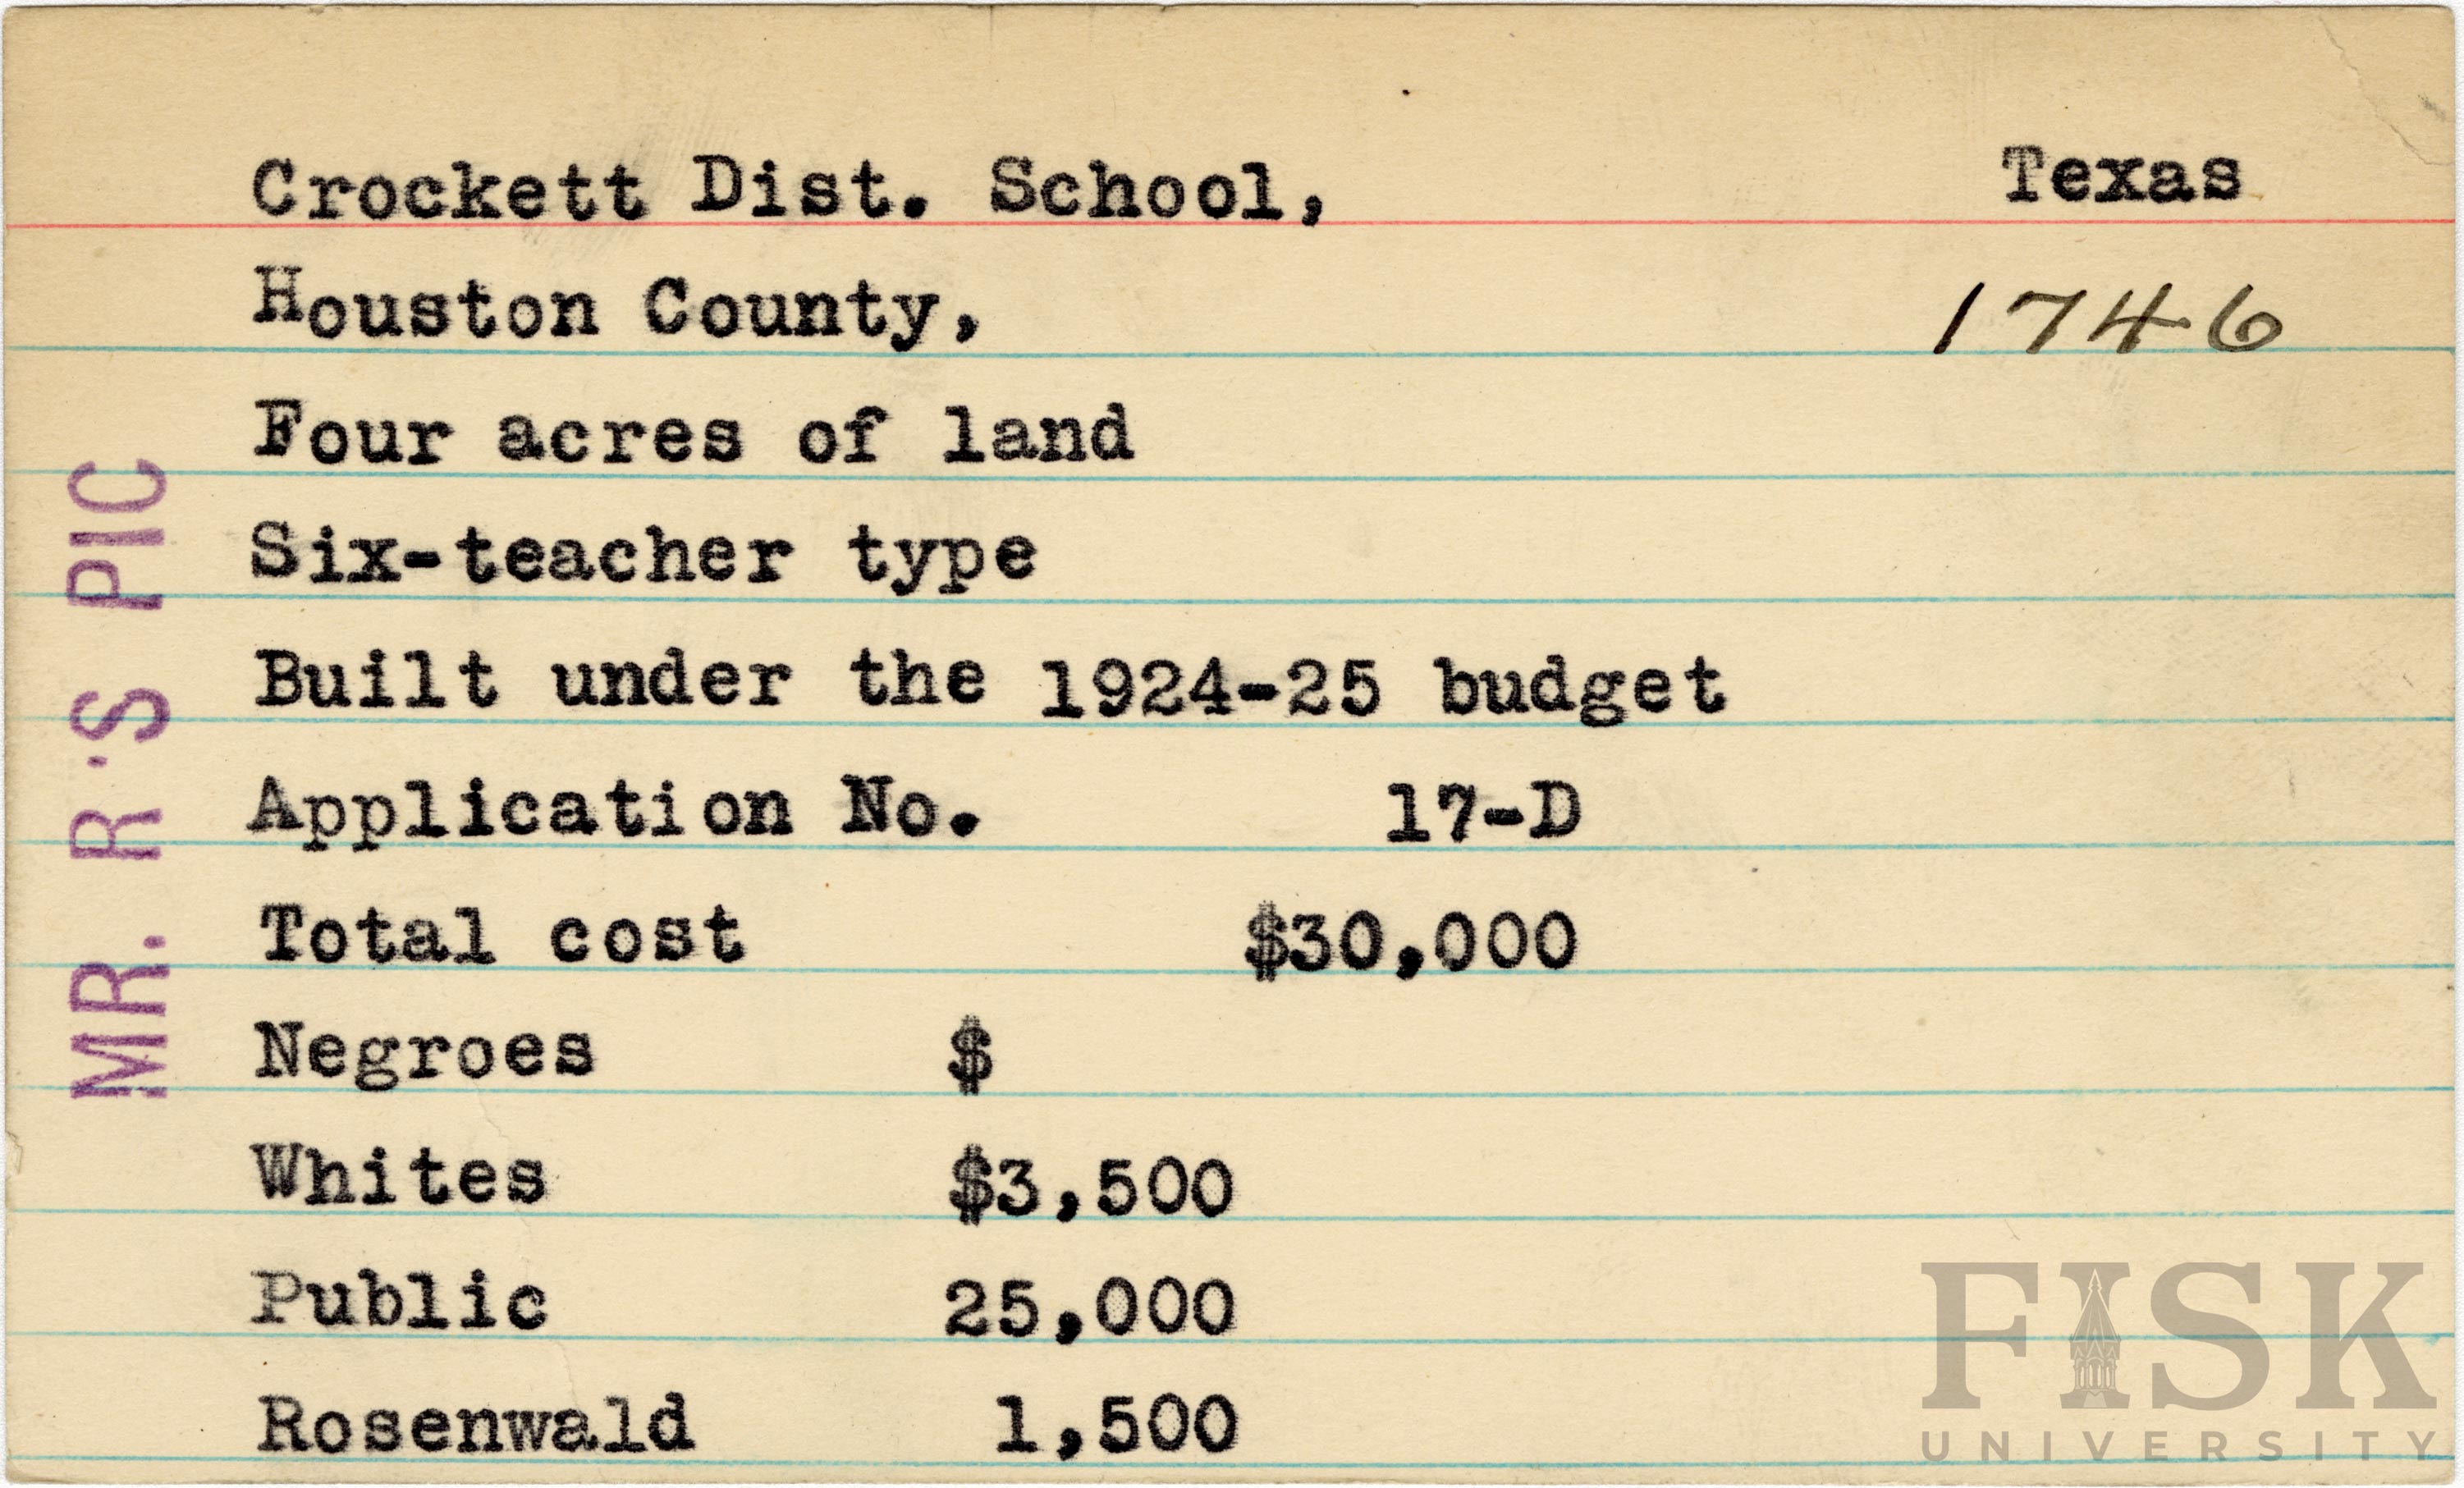 Crockett Dist. School, Texas
Houston County, 1746
Four acres of land
Six-teacher type
Built under the 1924-25 budget
Application No. 17-D
Total cost $30,000
Negroes $
Whites $3,500
Public 25,000
Rosenwald 1,500
MR. R'S PIC
FISK
UNIVERSITY